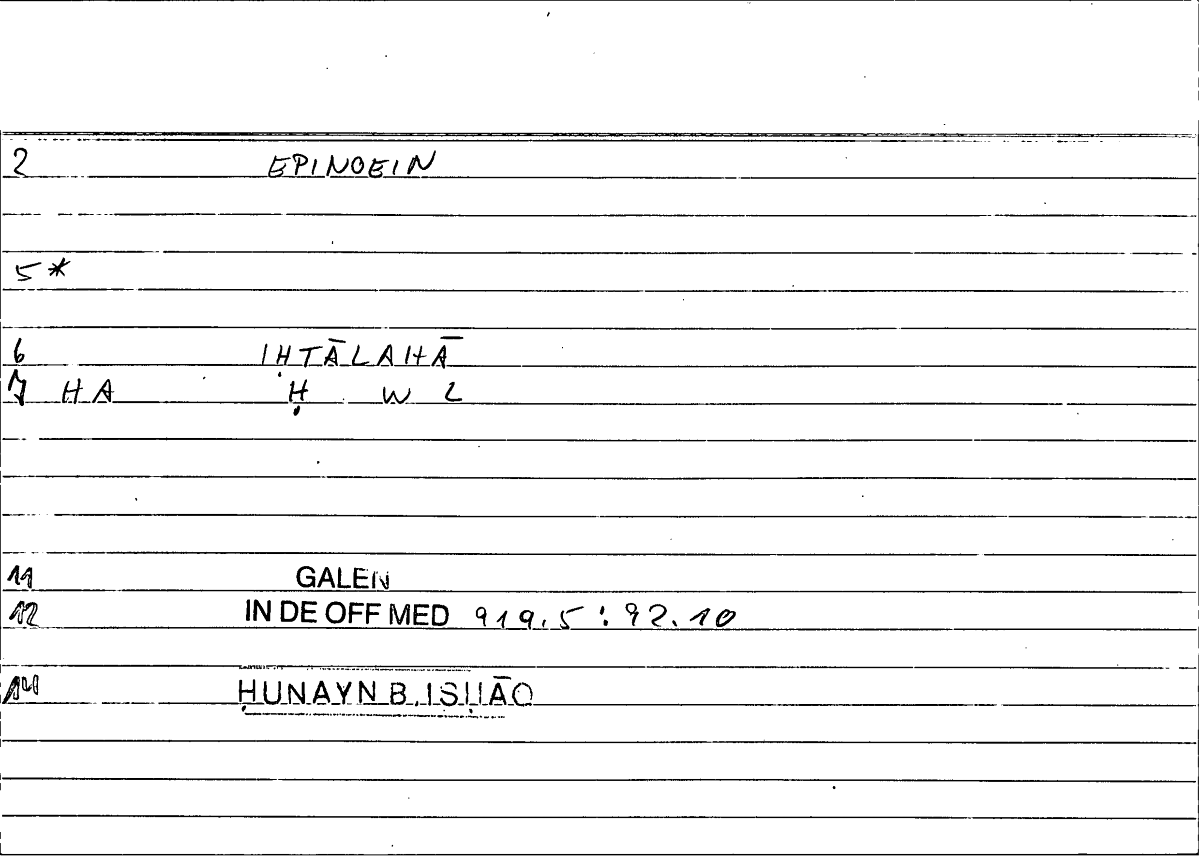 2 EPINOEIN
5*
6 IḤTĀLAHĀ
7 HA Ḥ W L
11 GALEN
12 IN DE OFF MED 919.5 : 92.10
14 ḤUNAYN B. ISḤĀQ